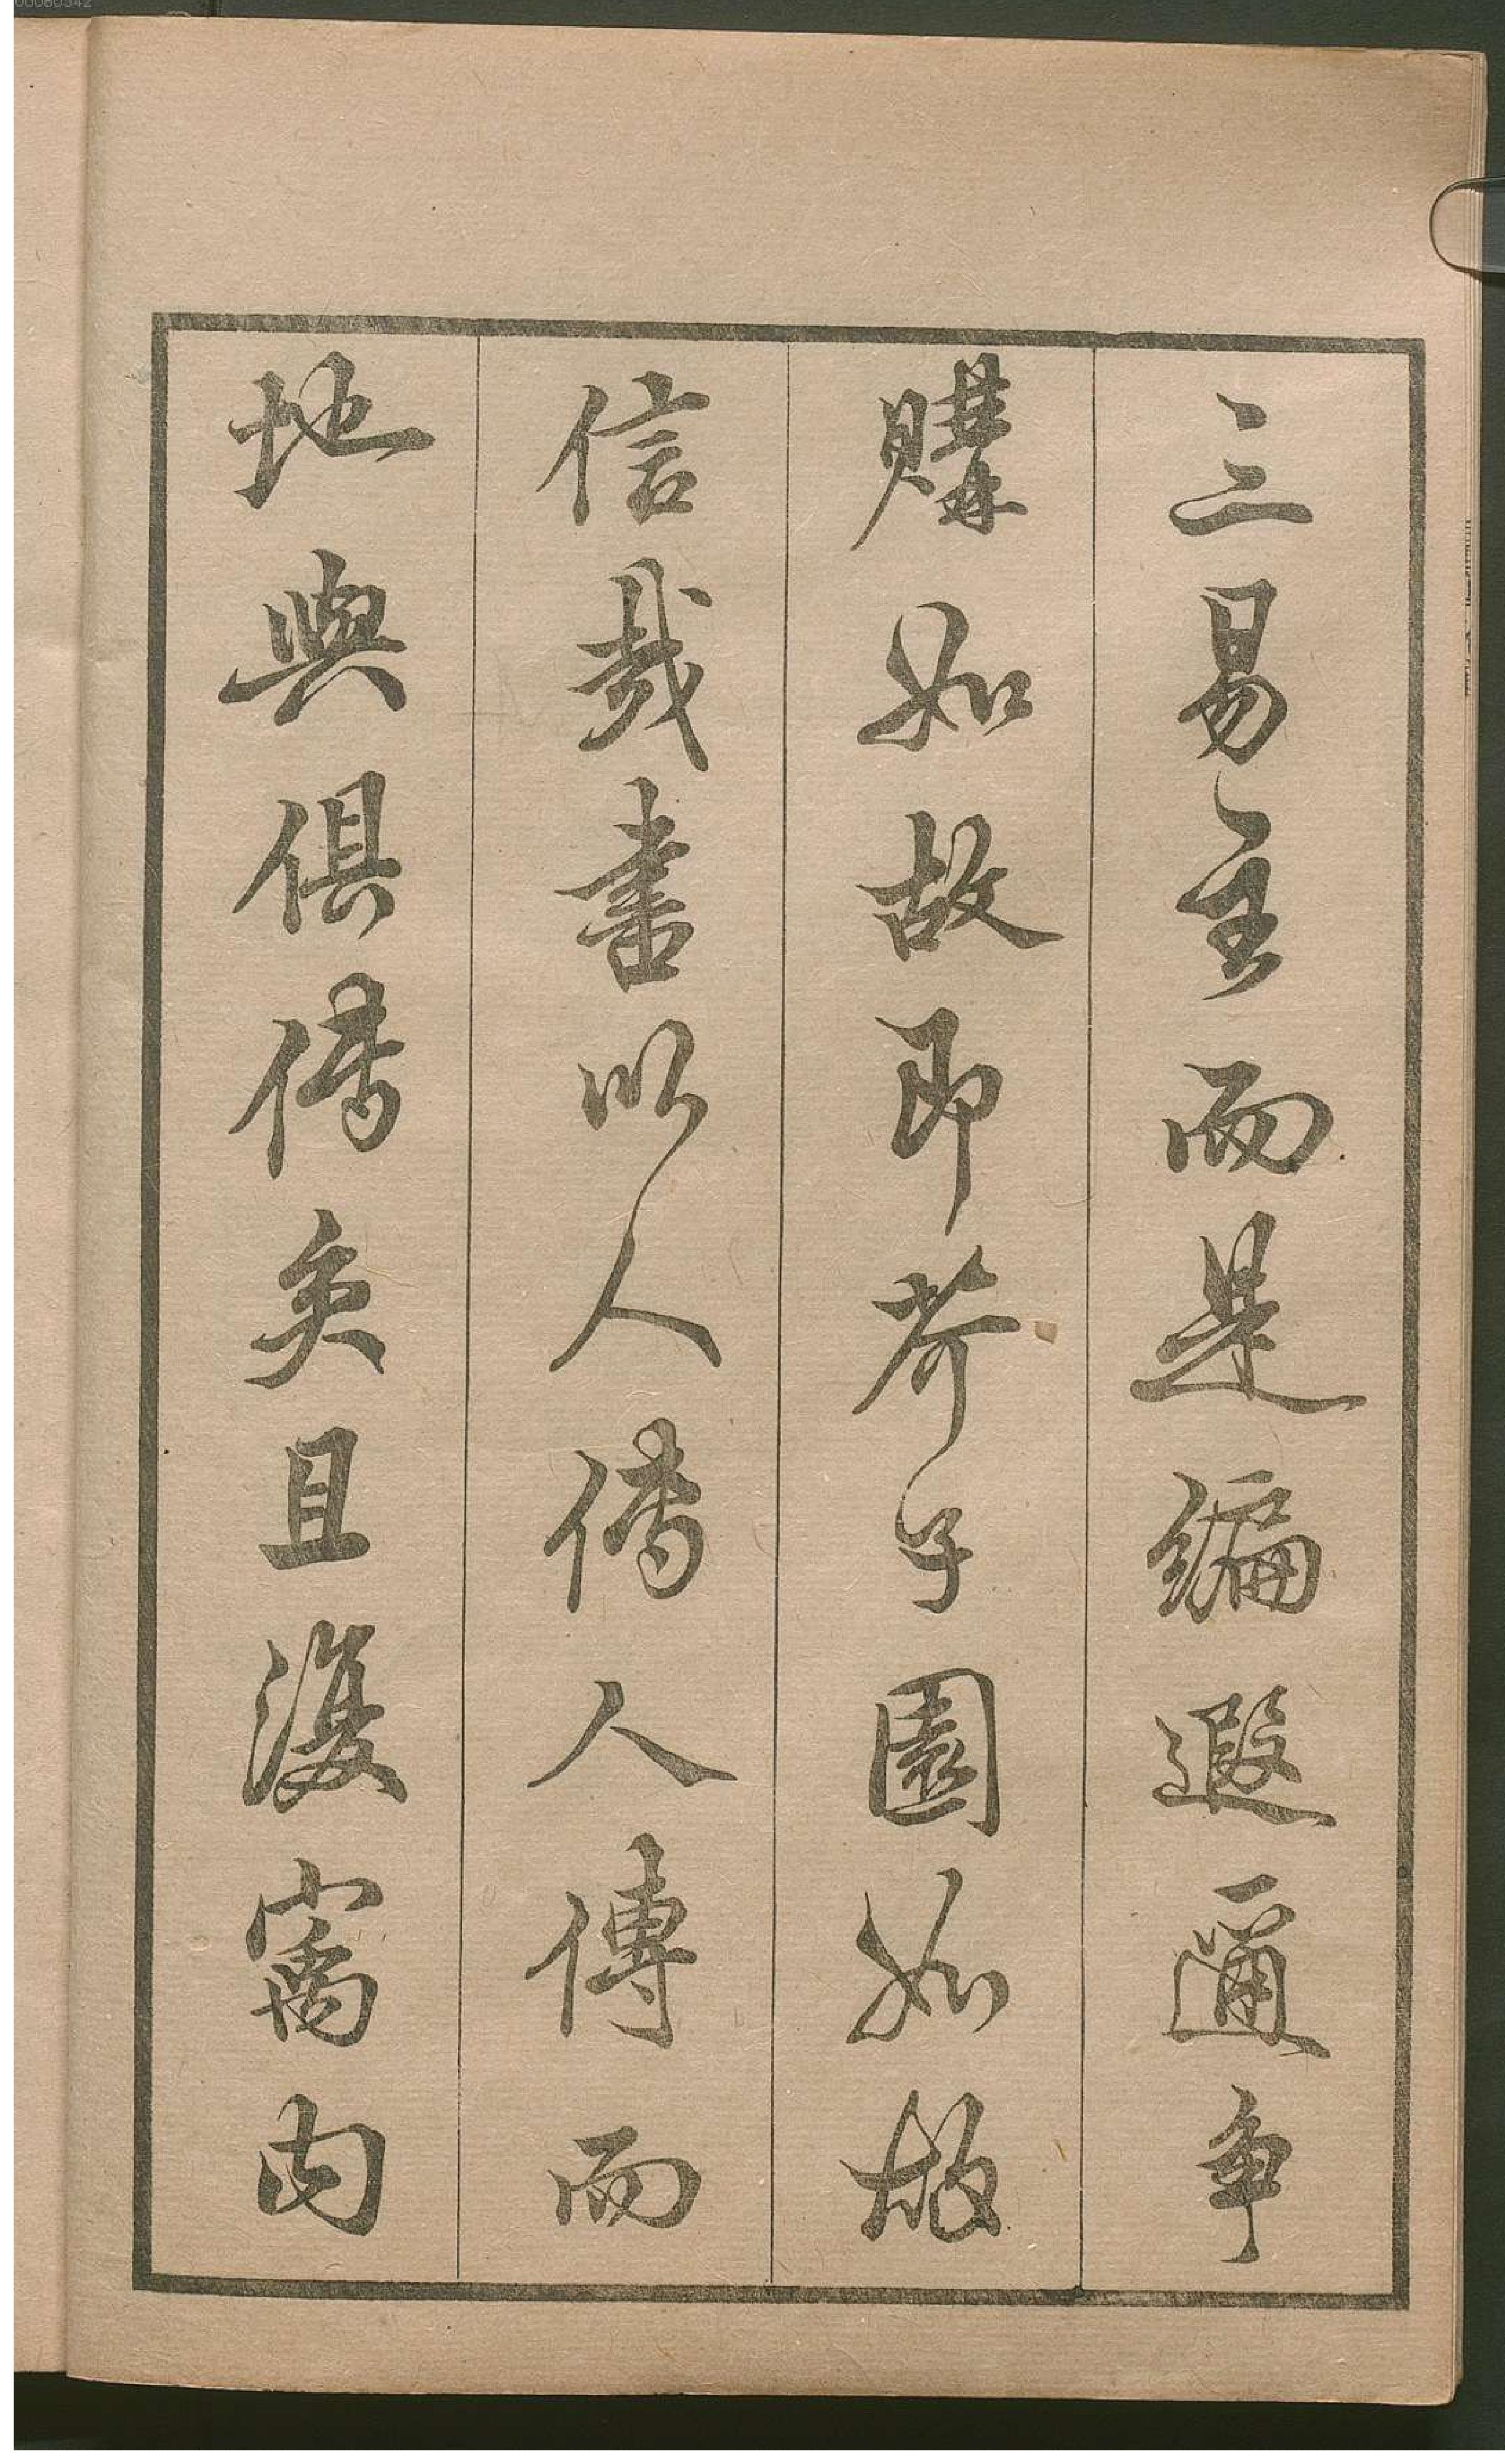 三易主而是編遐邇爭
購如故即芥子園如故
信哉書以人傳人傳而
地與俱傳矣且寰內